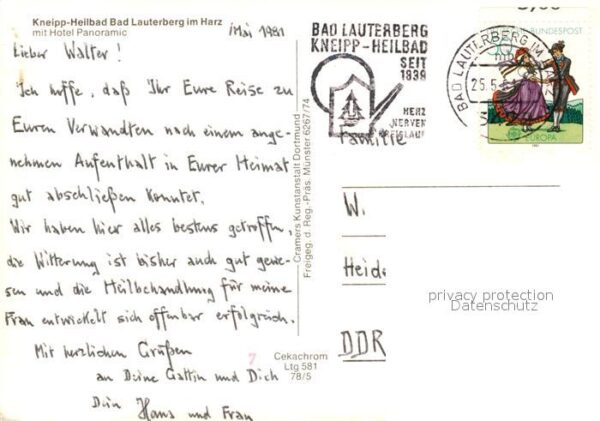 Kneipp-Heilbad Bad Lauterberg im Harz
mit Hotel Panoramic
Mai 1981
Lieber Walter!
Ich hoffe, daß Ihr Eure Reise zu
Euren Verwandten nach einem ange-
nehmen Aufenthalt in Eurer Heimat
gut abschließen konntet.
Wir haben hier alles bestens getroffen,
die Witterung ist bisher auch gut gewe-
sen und die Heilbehandlung für meine
Frau entwickelt sich offenbar erfolgreich.
Mit herzlichen Grüßen
an Deine Gattin und Dich
Dein Hans und Frau
Cramers Kunstanstalt Dortmund
Freigeg. d. Reg.-Präs. Münster 6267/74
7
Cekachrom
Ltg 581
78/5
BAD LAUTERBERG
KNEIPP-HEILBAD
SEIT
1839
HERZ
NERVEN
KREISLAUF
BAD LAUTERBERG IM
25.5.
BUNDESPOST
EUROPA
Familie
W.
Heid.
DDR
privacy protection
Datenschutz